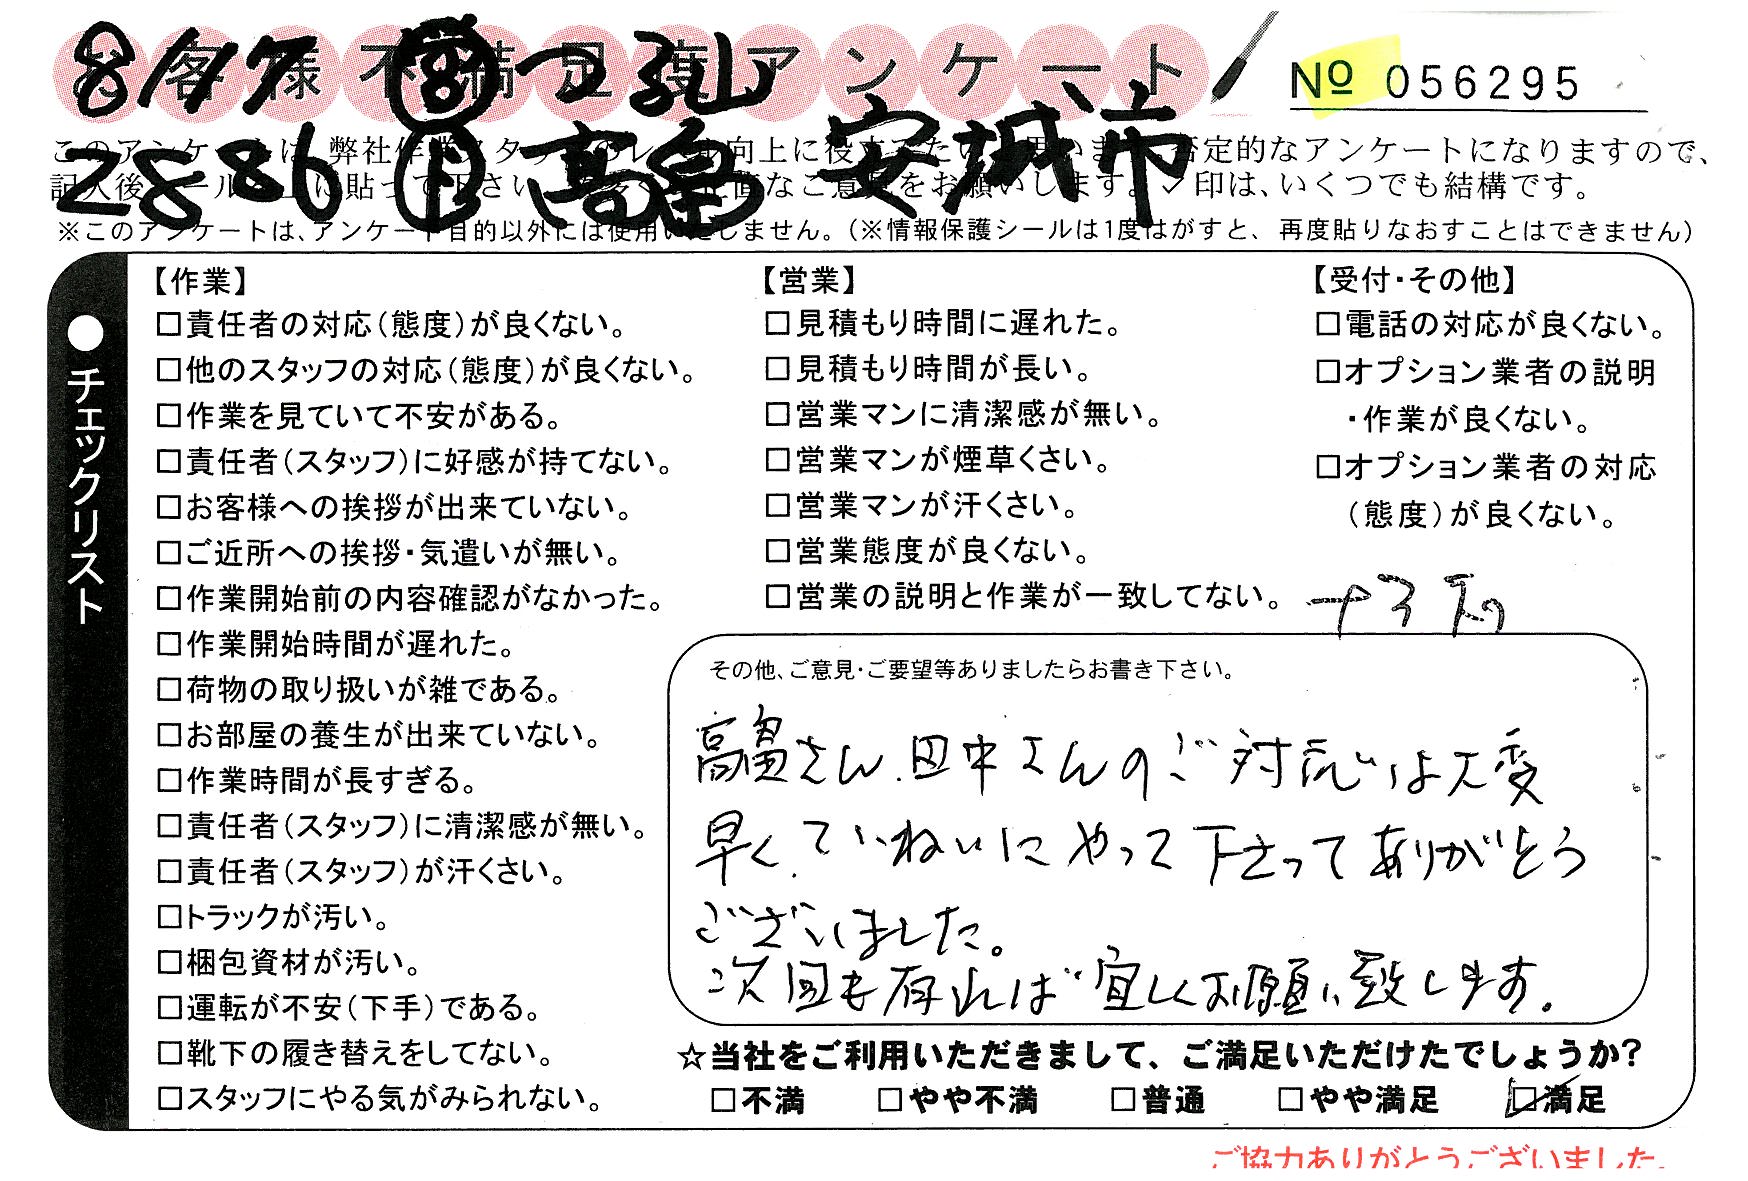 お客様不満足度アンケート
№ 056295
8/17
2886 高畠 安城市
このアンケートは、弊社作業スタッフのレベル向上に役立てたいと思います。否定的なアンケートになりますので、
記入後シールを上に貼って下さい。数多くの正直なご意見をお願いします。✓印は、いくつでも結構です。
※このアンケートは、アンケート目的以外には使用いたしません。（※情報保護シールは1度はがすと、再度貼りなおすことはできません）
●チェックリスト
【作業】
□責任者の対応（態度）が良くない。
□他のスタッフの対応（態度）が良くない。
□作業を見ていて不安がある。
□責任者（スタッフ）に好感が持てない。
□お客様への挨拶が出来ていない。
□ご近所への挨拶・気遣いが無い。
□作業開始前の内容確認がなかった。
□作業開始時間が遅れた。
□荷物の取り扱いが雑である。
□お部屋の養生が出来ていない。
□作業時間が長すぎる。
□責任者（スタッフ）に清潔感が無い。
□責任者（スタッフ）が汗くさい。
□トラックが汚い。
□梱包資材が汚い。
□運転が不安（下手）である。
□靴下の履き替えをしてない。
□スタッフにやる気がみられない。
【営業】
□見積もり時間に遅れた。
□見積もり時間が長い。
□営業マンに清潔感が無い。
□営業マンが煙草くさい。
□営業マンが汗くさい。
□営業態度が良くない。
□営業の説明と作業が一致してない。
【受付・その他】
□電話の対応が良くない。
□オプション業者の説明
・作業が良くない。
□オプション業者の対応
（態度）が良くない。
その他、ご意見・ご要望等ありましたらお書き下さい。
高畠さん、田中さんのご対応は大変
早く、ていねいにやって下さってありがとう
ございました。
次回も有れば宜しくお願い致します。
☆当社をご利用いただきまして、ご満足いただけたでしょうか？
□不満 □やや不満 □普通 □やや満足 ☑満足
ご協力ありがとうございました。